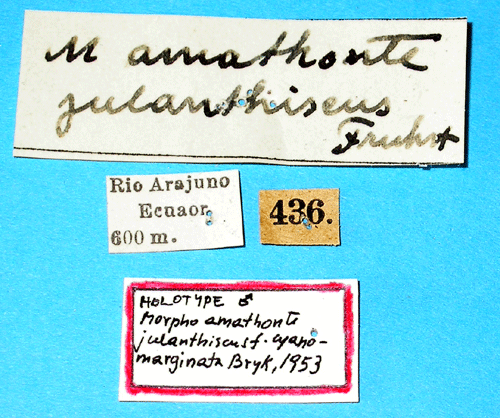 M amathonte
julanthiscus
Fruhst
Rio Arajuno
Ecuaor.
600 m.
436.
HOLOTYPE ♂
Morpho amathonte
julanthiscus f. cyano-
marginata Bryk, 1953